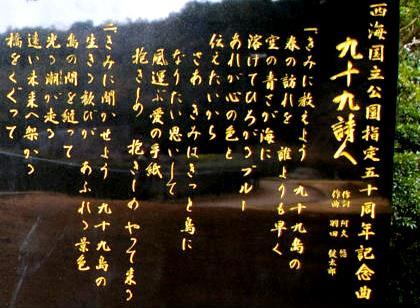 西海国立公園指定五十周年記念曲
九十九詩人
作詩 阿久 悠
作曲 羽田 健太郎
「きみに教えよう 九十九島の
春の訪れを 誰よりも早く
空の青さが海に
溶けてひろがるブルー
あれが心の色と
伝えたいから
さあ きみはきっと鳥に
なりたい思いして
風運ぶ愛の手紙
抱きしめ 抱きしめ やって来る
「きみに聞かせよう 九十九島の
生きる歓びが あふれる景色
島の間を縫って
光る潮が走る
遠い未来へ架かる
橋をくぐって